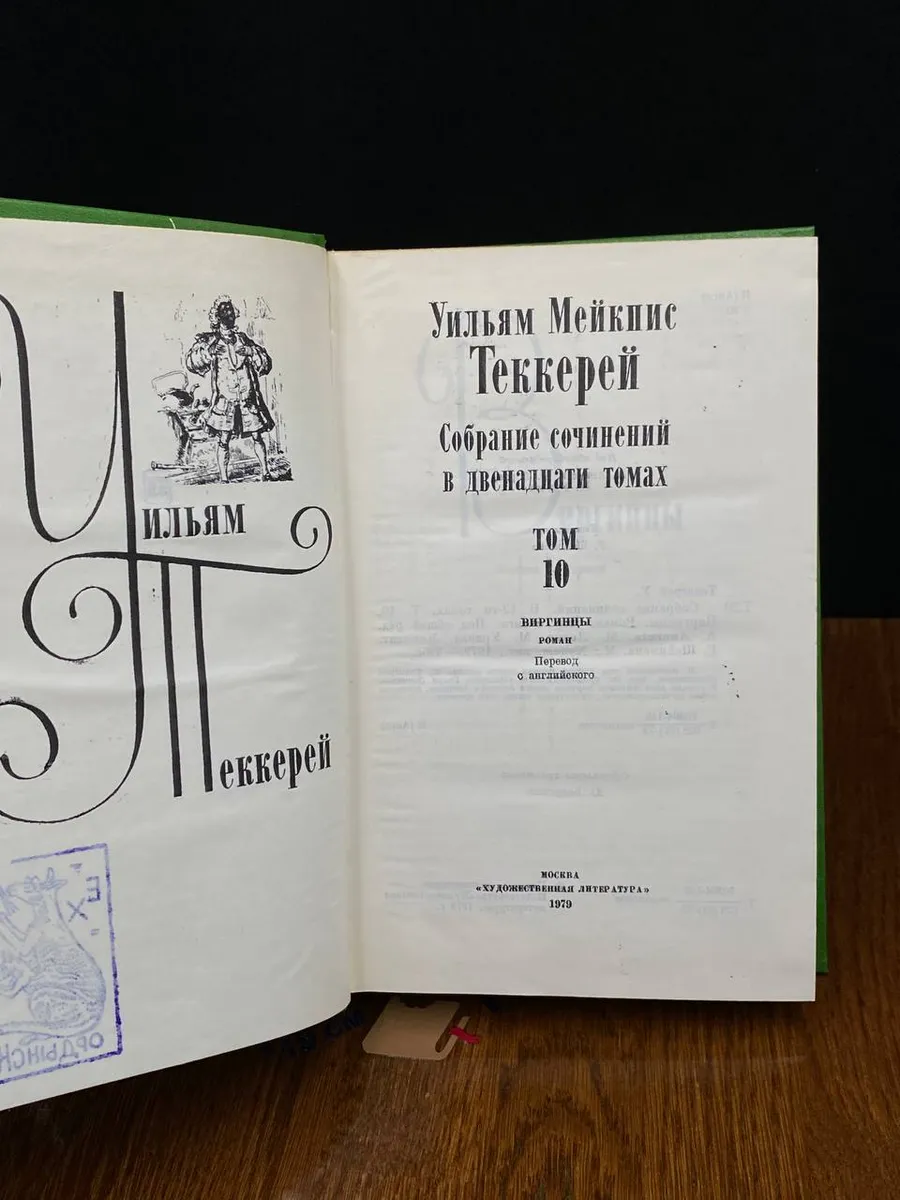 Уильям
Теккерей
Уильям Мейкпис
Теккерей
Собрание сочинений
в двенадцати томах
ТОМ
10
ВИРГИНЦЫ
РОМАН
Перевод
с английского
МОСКВА
«ХУДОЖЕСТВЕННАЯ ЛИТЕРАТУРА»
1979